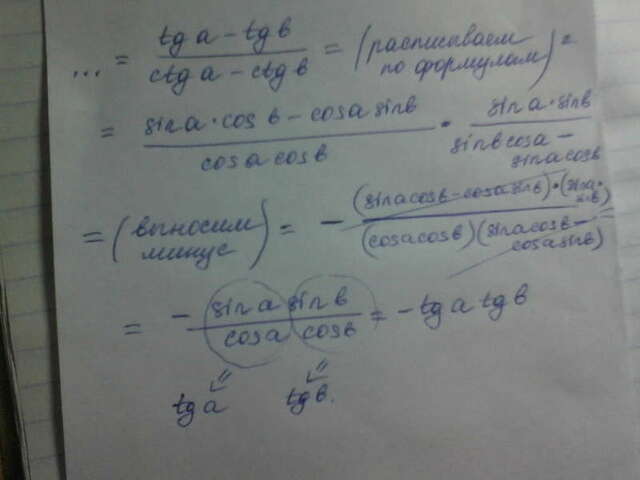 ... = (tg a - tg b)/(ctg a - ctg b) = (расписываем по формулам) =
= (sin a · cos b - cos a sin b)/(cos a cos b) · (sin a · sin b)/(sin b cos a - sin a cos b)
= (выносим минус) = - ((sin a cos b - cos a sin b) · (sin a · sin b))/((cos a cos b)(sin a cos b - cos a sin b)) =
= - (sin a sin b)/(cos a cos b) = - tg a tg b
tg a tg b.